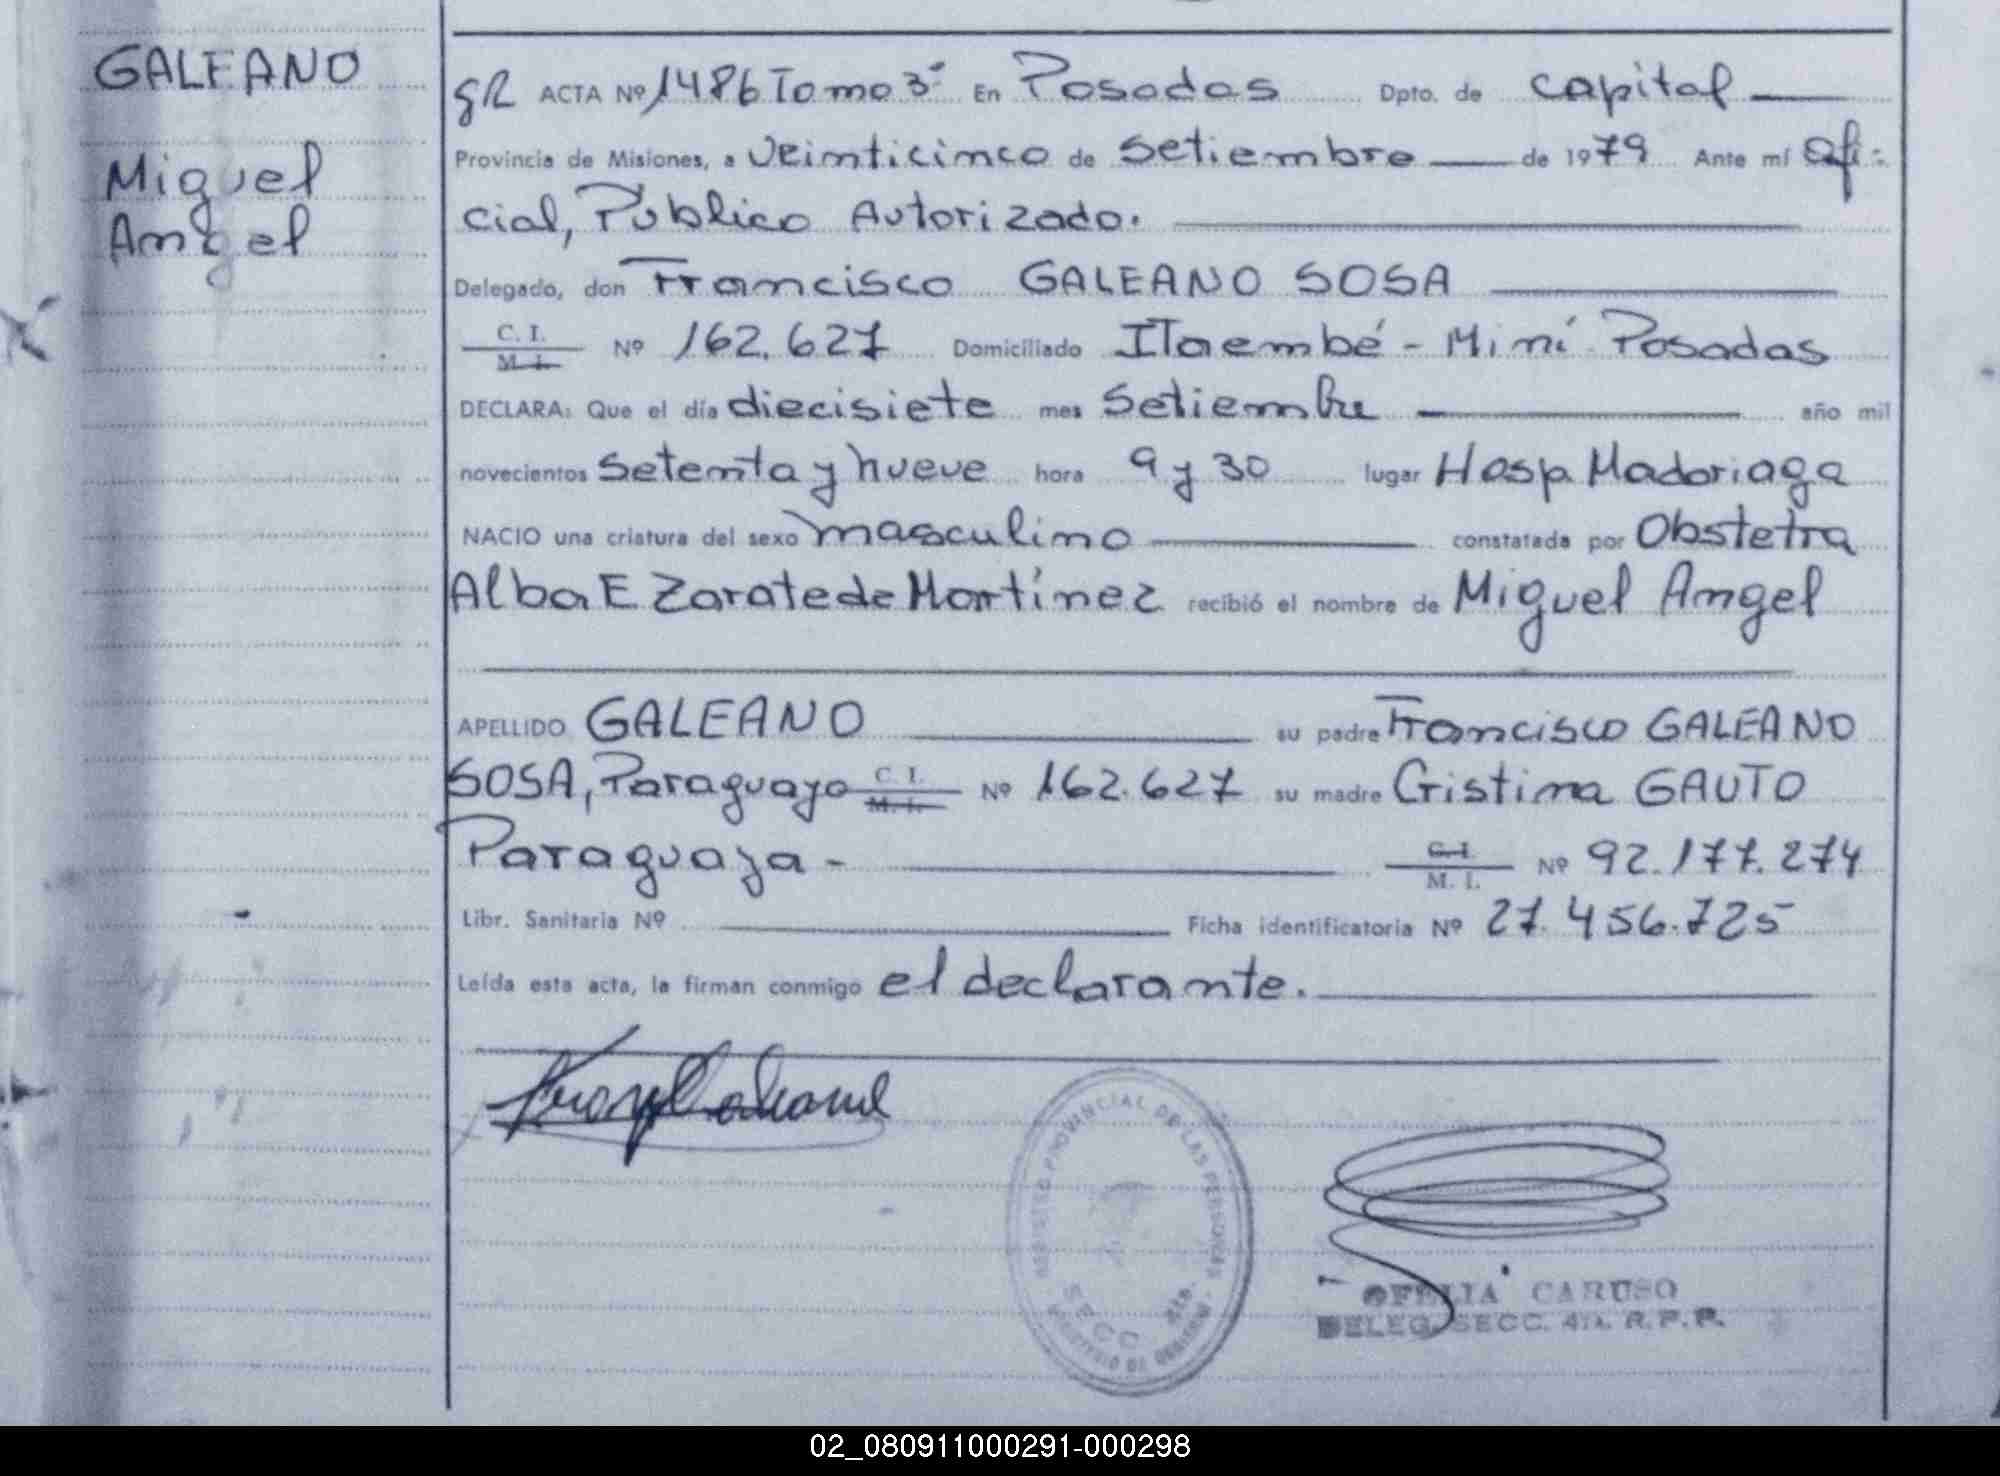 GALEANO
Miguel
Angel
gR ACTA Nº 1486 Tomo 3º En Posadas Dpto. de Capital
Provincia de Misiones, a veinticinco de Setiembre de 1979 Ante mí Ofi-
cial, Público Autorizado.
Delegado, don Francisco GALEANO SOSA
C. I. M. I. Nº 162.627 Domiciliado Itaembé - Miní - Posadas
DECLARA: Que el día diecisiete mes Setiembre año mil
novecientos setenta y nueve hora 9 y 30 lugar Hosp. Madariaga
NACIO una criatura del sexo masculino constatada por Obstetra
Alba E Zarate de Martínez recibió el nombre de Miguel Angel
APELLIDO GALEANO su padre Francisco GALEANO
SOSA, Paraguayo C. I. M. I. Nº 162.627 su madre Cristina GAUTO
Paraguaya - C. I. M. I. Nº 92.177.274
Libr. Sanitaria Nº Ficha identificatoria Nº 27.456.725
Leída esta acta, la firman conmigo el declarante.
REGISTRO PROVINCIAL DE LAS PERSONAS
SECC. 4ta.
MINISTERIO DE GOBIERNO
OFELIA CARUSO
DELEG. SECC. 4ta. R.P.P.
02_080911000291-000298